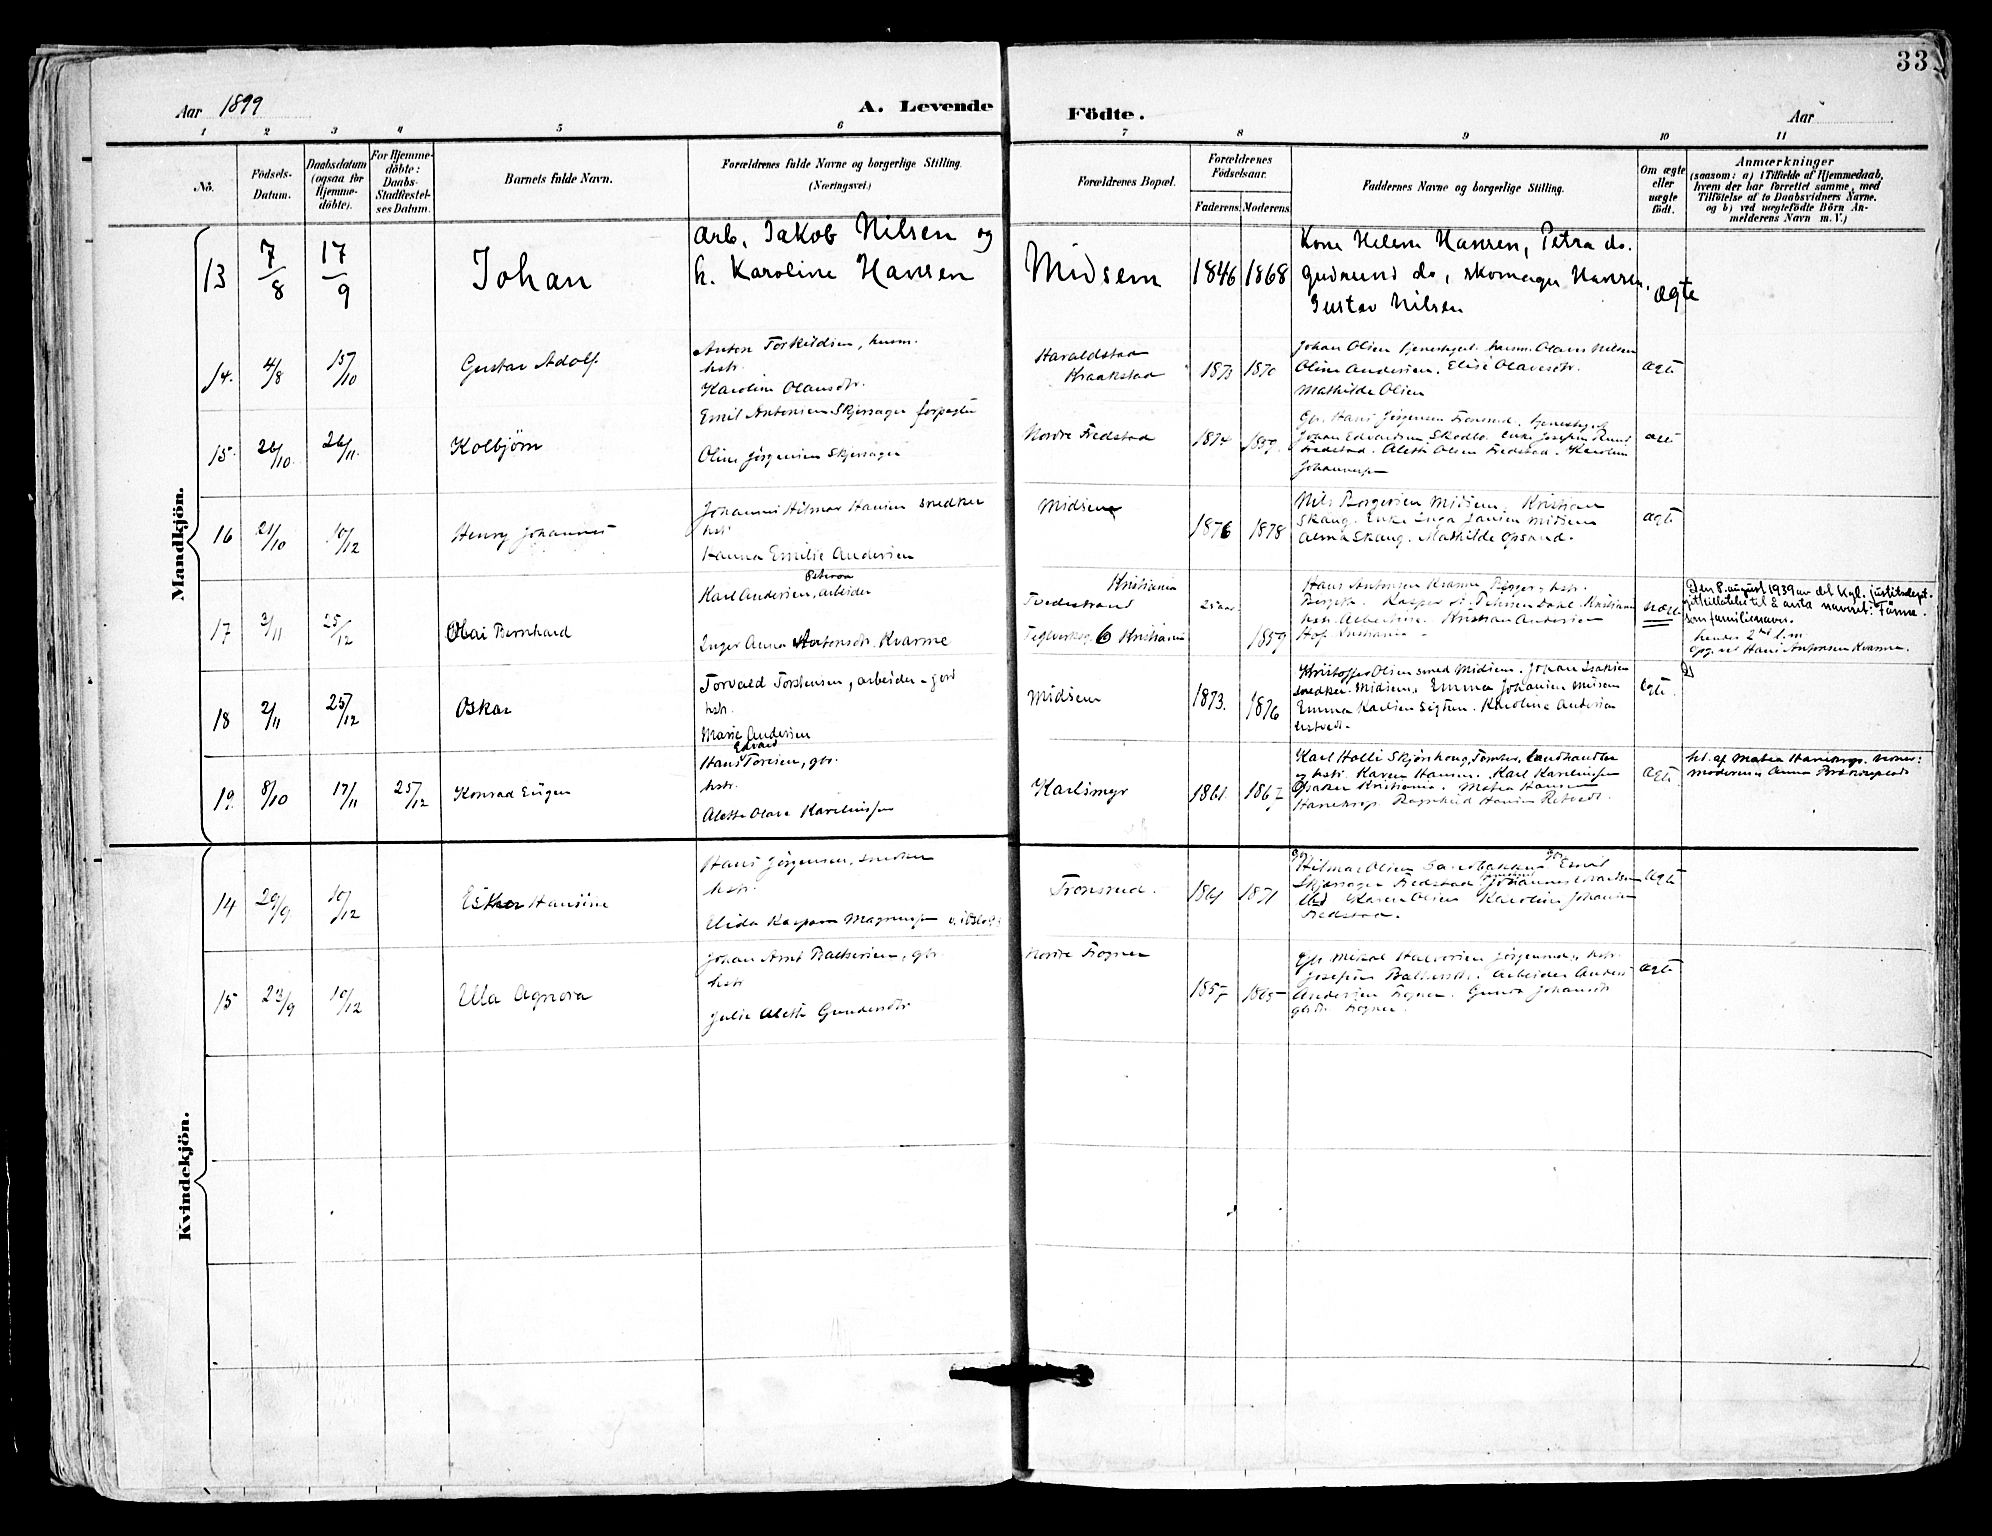 33
Aar 1899
A. Levende
Födte.
Aar
1 2 3 4 5 6 7 8 9 10 11
No.
Födsels-
Datum.
Daabsdatum
(ogsaa for
Hjemme-
döbte).
For Hjemme-
döbte:
Daabs-
Stadfæstel-
ses Datum.
Barnets fulde Navn.
Forældrenes fulde Navne og borgerlige Stilling.
(Næringsvei.)
Forældrenes Bopæl.
Forældrenes
Födselsaar.
Faderens Moderens
Faddernes Navne og borgerlige Stilling.
Om ægte
eller
uægte
födt.
Anmærkninger
(saasom: a) i Tilfælde af Hjemmedaab,
hvem der har forrettet samme, med
Tilföielse af to Daabsvidners Navne.
og b) ved uægtefödte Börn An-
melderens Navn m. V.)
Mandkjön.
13 7/8 17/9 Johan
arb. Jakob Nilsen og
h. Karoline Hansen
Midsem 1846 1868
Kone Helene Hansen, Petra do.
Gudmund do, skomager Hansen.
Gustav Nilsen
ægte
14. 4/8 15/10 Gustav Adolf
Anton Torkildsen, husm.
hstr.
Karoline Olausdtr.
Haraldstad
Kraakstad
1873 1870
Johan Olsen tjenestgut. husm. Olaus Nilsen
Oline Andersen. Elise Olavesdtr.
Mathilde Olsen
ægte
15. 26/10. 26/11. Kolbjörn
Emil Antonsen Skjersager forpagter
Oline Jörgensen Skjersager
Nordre Fredstad 1874
Gbr. Hans Jörgensen Tronsrud. tjenestgut
Johan Edvardsen Enke Josefine
Fredstad. Alette Olsen Fredstad. Karoline
ægte
16 21/10 10/12 Henry Johannes
Johannes Hilmar Hansen snedker
hstr.
Hanna Emilie Andersen
Midsem 1876 1878
Nils Borgersen Midsem. Kristian
Skaug. Enke Inga Jansen Midsem
Alma Skaug. Mathilde Opsand.
ægte
17 3/11 25/12 Olai Bernhard
Karl Andersen, arbeider
Inger Anna Antonsdtr. Kvarme
Kristiania
Tvedestrand
Teglverksg. 6 Kristiania
25 aar 1859
Hans Antonsen Kvarme
hstr. Albertine. Kristian Andersen
uægte
Den 8. august 1939 av det kgl. justitsdept.
git tillatelse til å anta navnet: Fänne
som familienavn.
hendes 2det l.m
opg. ved Hans Antonsen Kvarme.
18 2/11 25/12 Oskar
Torvald Torstensen, arbeider
hstr.
Marie Andersen
Midsem 1873. 1876
Kristoffer Olsen smed Midsem. Johan Isaksen
snedker Midsem, Emma Johansen Midsem
Emma Karlsen Sigtun. Karoline Andersen
ægte.
19. 8/10 17/11 25/12 Konrad Eugen
Edvard
Hans Toresen, gbr.
hstr.
Alette Olava Karelius
Karlsmyr 1861. 1862
Karl Holli Skjönhaug, Tomter, Landhandler
og hstr. Karen Hansen. Karl Kareliussen
Kristiania. Matea Hansen
Ragnhild Hansen
ægte
hd. af Matea
moderen Anna
Kvindekjön.
14 29/9 10/12 Ester Hansine
Hans Jörgensen, snedker
hstr.
Elida Kaspara Magnussen
Tronsrud. 1861 1871
Hilmar Olsen Sandbakken Emil
Skjersager Fredstad Johannes
Karen Olsen Karoline Johansen
Fredstad.
ægte
15 23/9 10/12 Ella Agnora
Johan Arnt Baltsersen, gbr.
hstr
Julie Alette Gundersdtr
Nordre Frogner 1857 1865
Gbr. Mikal Halvorsen hstr.
Josefine Baltsersdtr. Arbeider Anders
Andersen Frogner. Gunda Johansdtr
Frogner.
ægte